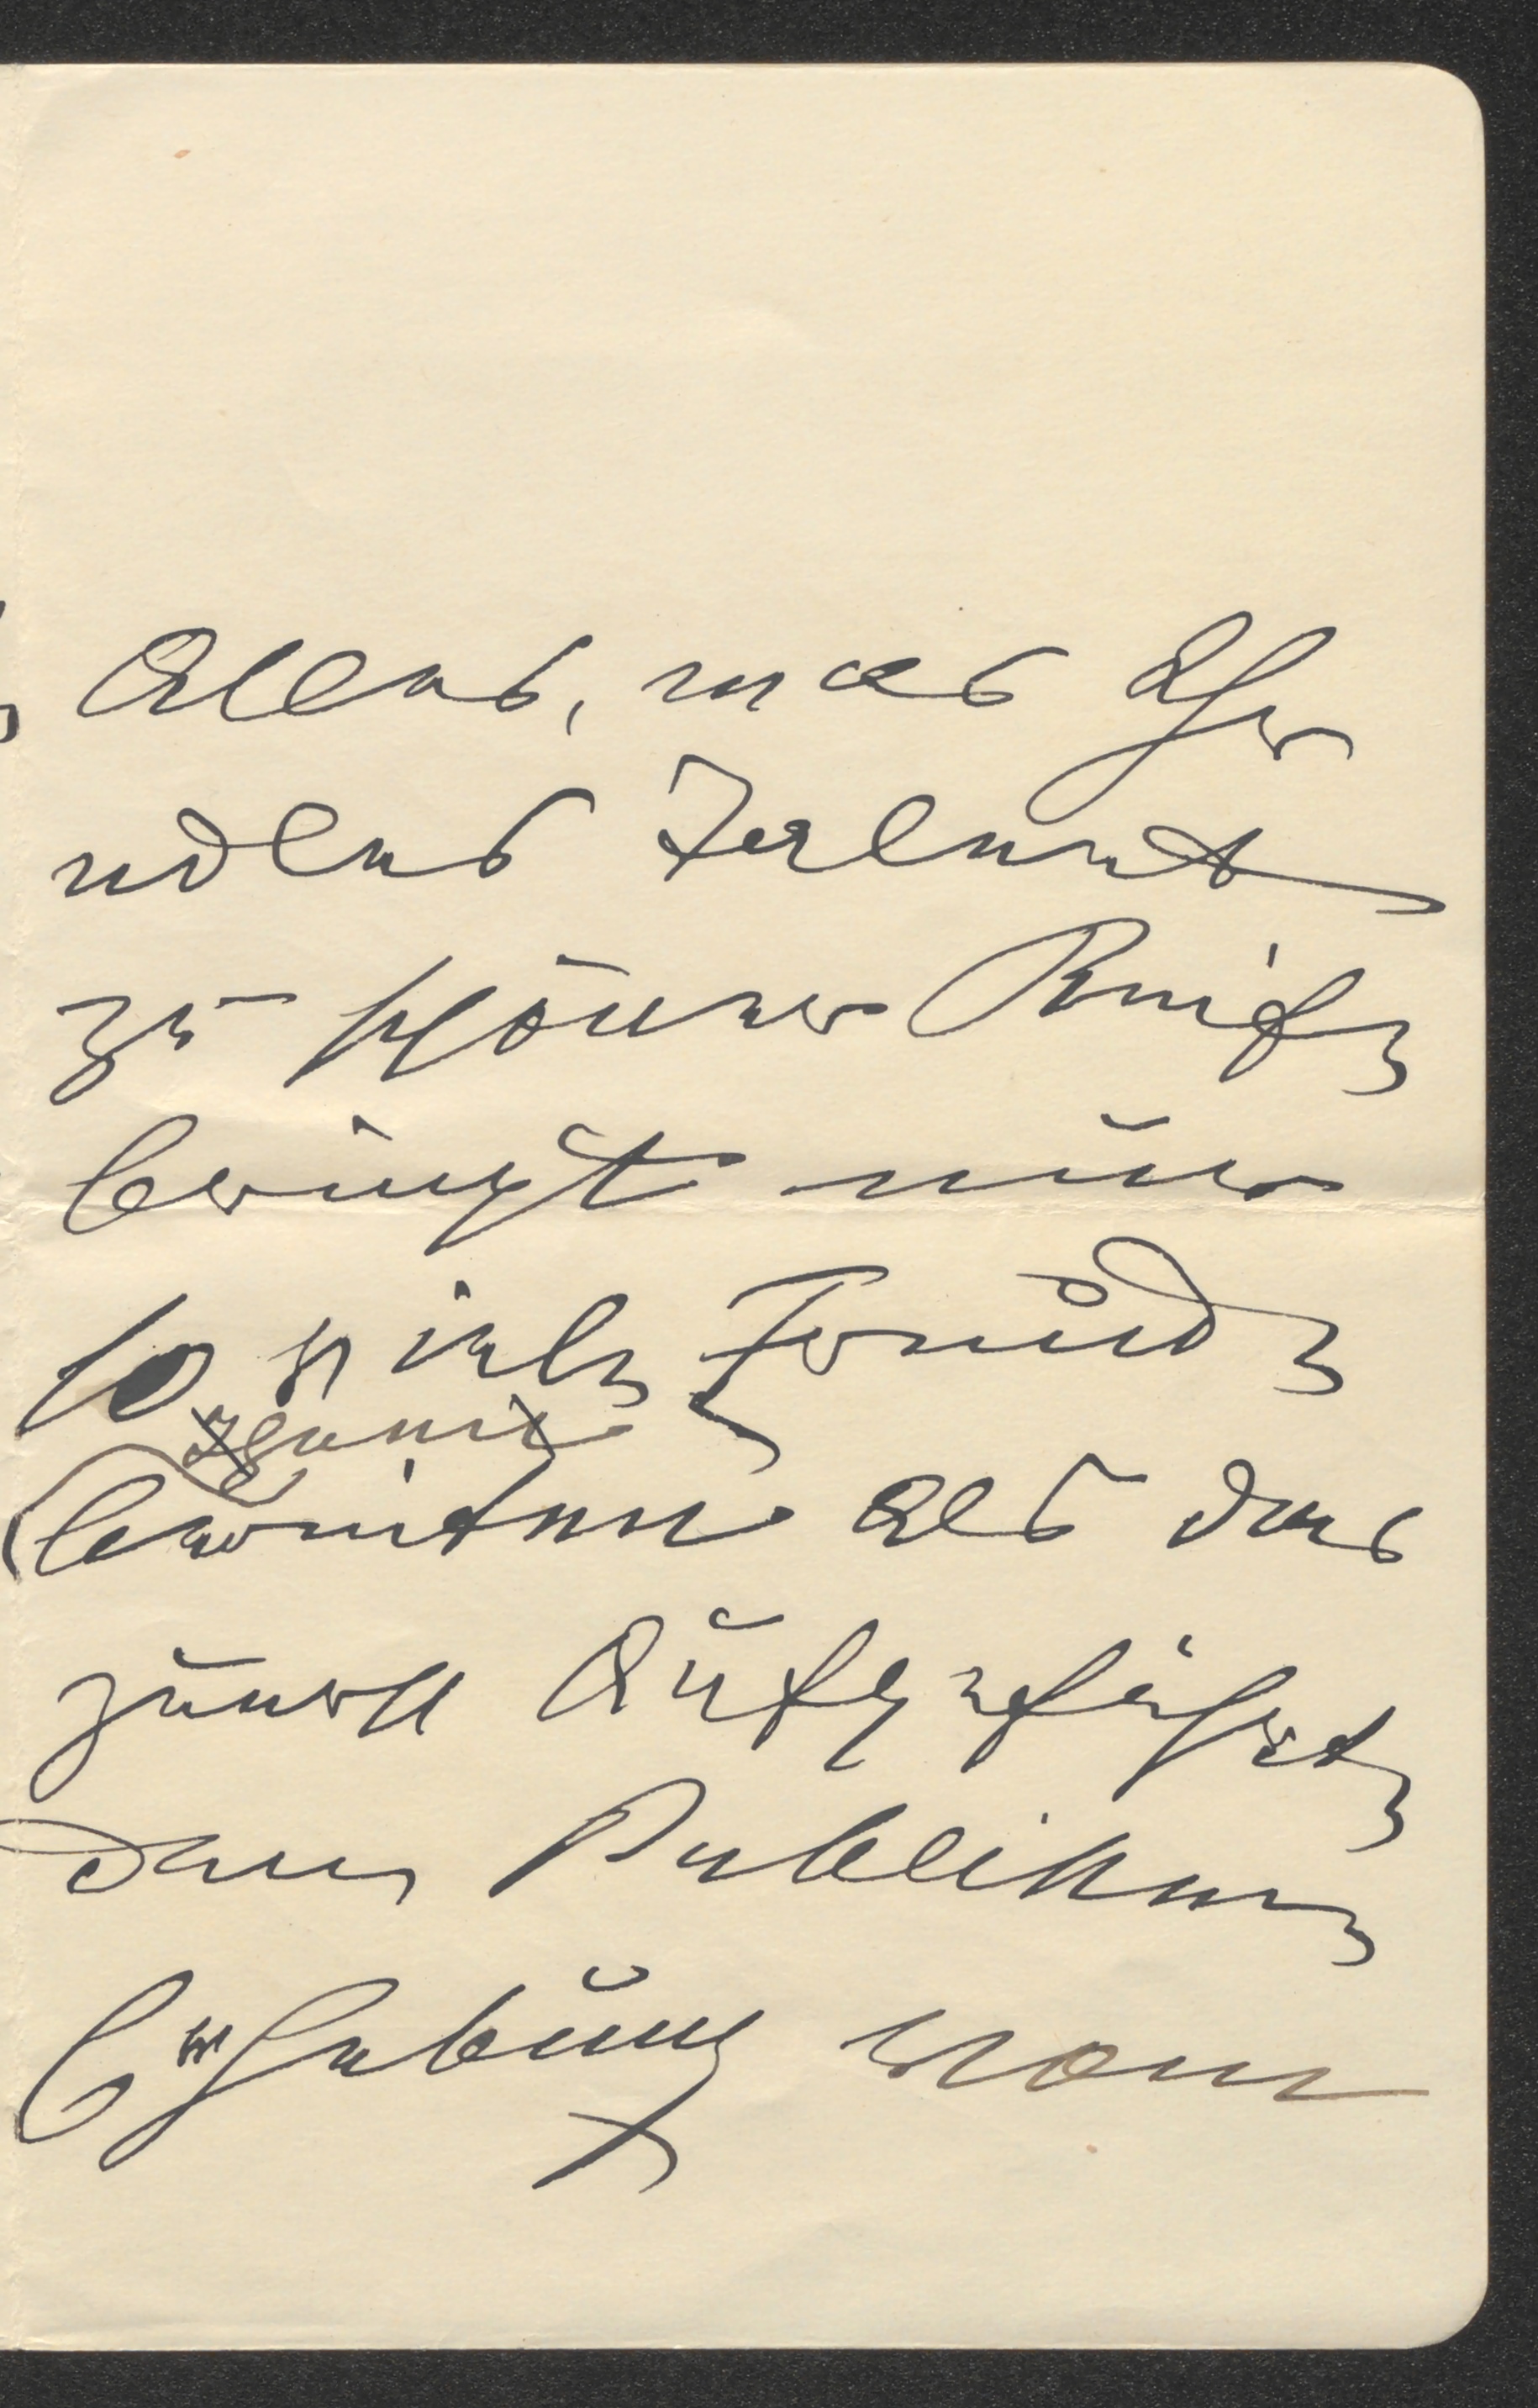 Alles, was Ihr
edles Talent
zu schöner Reife
bringt mir
so viele Freude
bereiten als das
zuerst Aufgeführte
dem Publikum
Erhebung vom